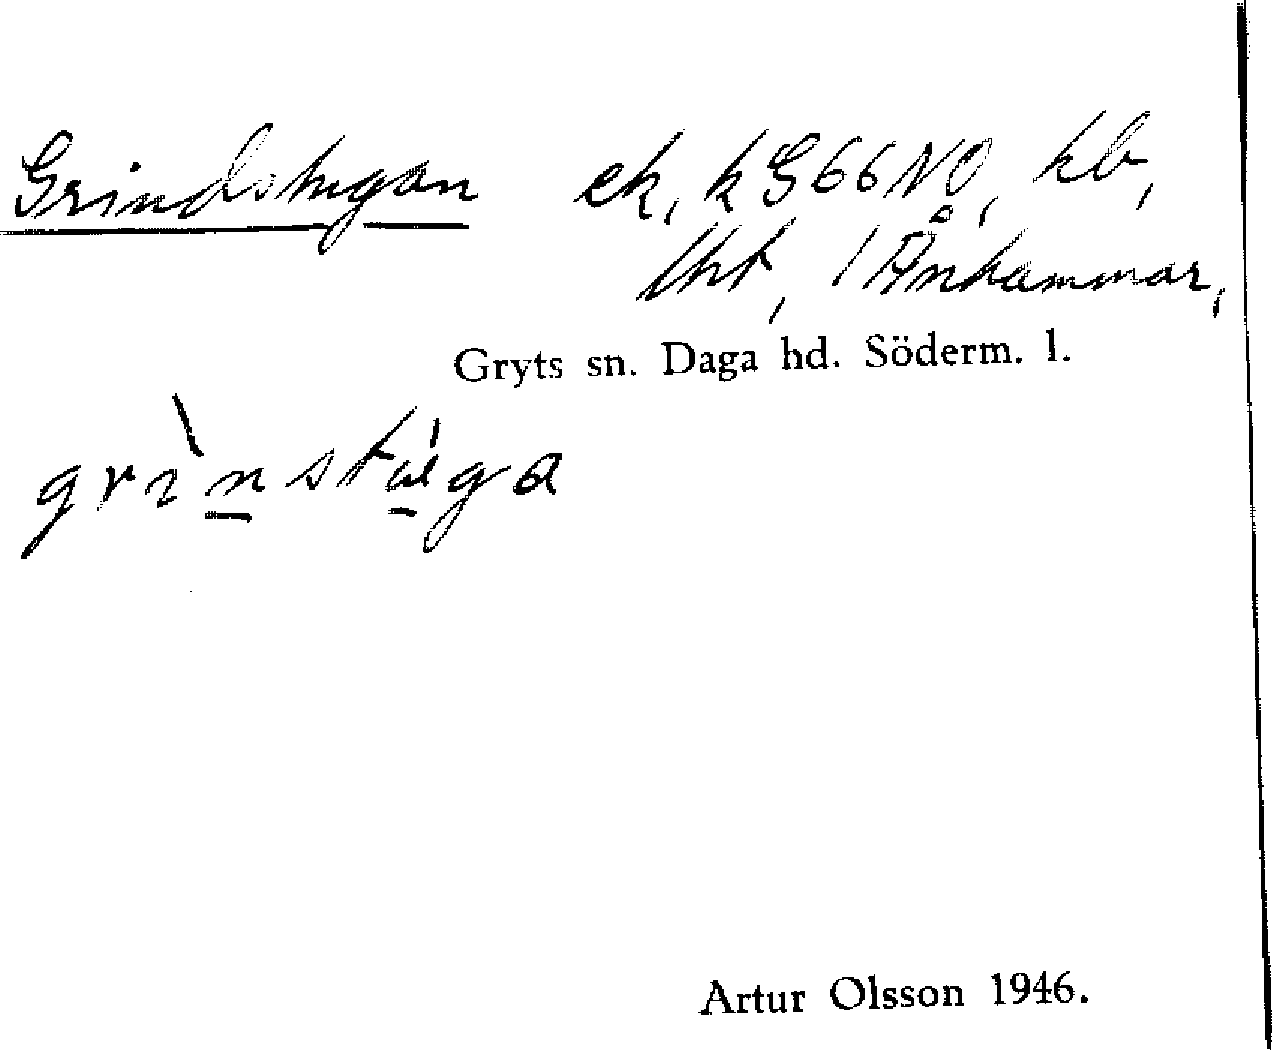 Grindstugan ek, k G66NO, kb,
lht, / Ånhammar,
Gryts sn. Daga hd. Söderm. l.
grìnstúga
Artur Olsson 1946.